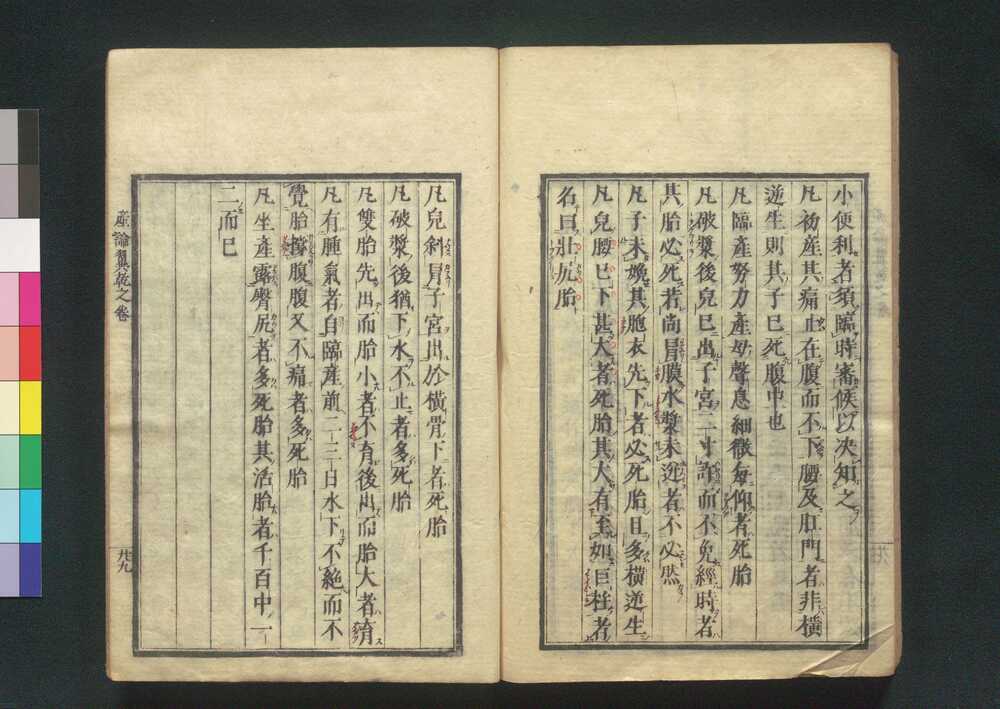 小便利者須臨時審候以決知之
凡初産其痛止在腹而不下腰及肛門者非橫
逆生則其子已死腹中也
凡臨産努力産母聲息細微每仰者死胎
凡破漿後兒已出子宮一寸許而不免經時者
其胎必死若尚冒膜水漿未迸者不必然
凡子未娩其胞衣先下者必死胎且多橫逆生
凡兒腰已下甚大者死胎其大有至如巨柱者
名曰壯尻胎
凡兒斜冒子宮出於橫骨下者死胎
凡破漿後猶下水不止者多死胎
凡雙胎先出而胎小者不育後出而胎大者育
凡有腫氣者自臨産前二三日水下不絕而不
覺胎撐腹腹又不痛者多死胎
凡坐産露臀尻者多死胎其活胎者千百中一
二而已
産論翼乾之卷
廿九